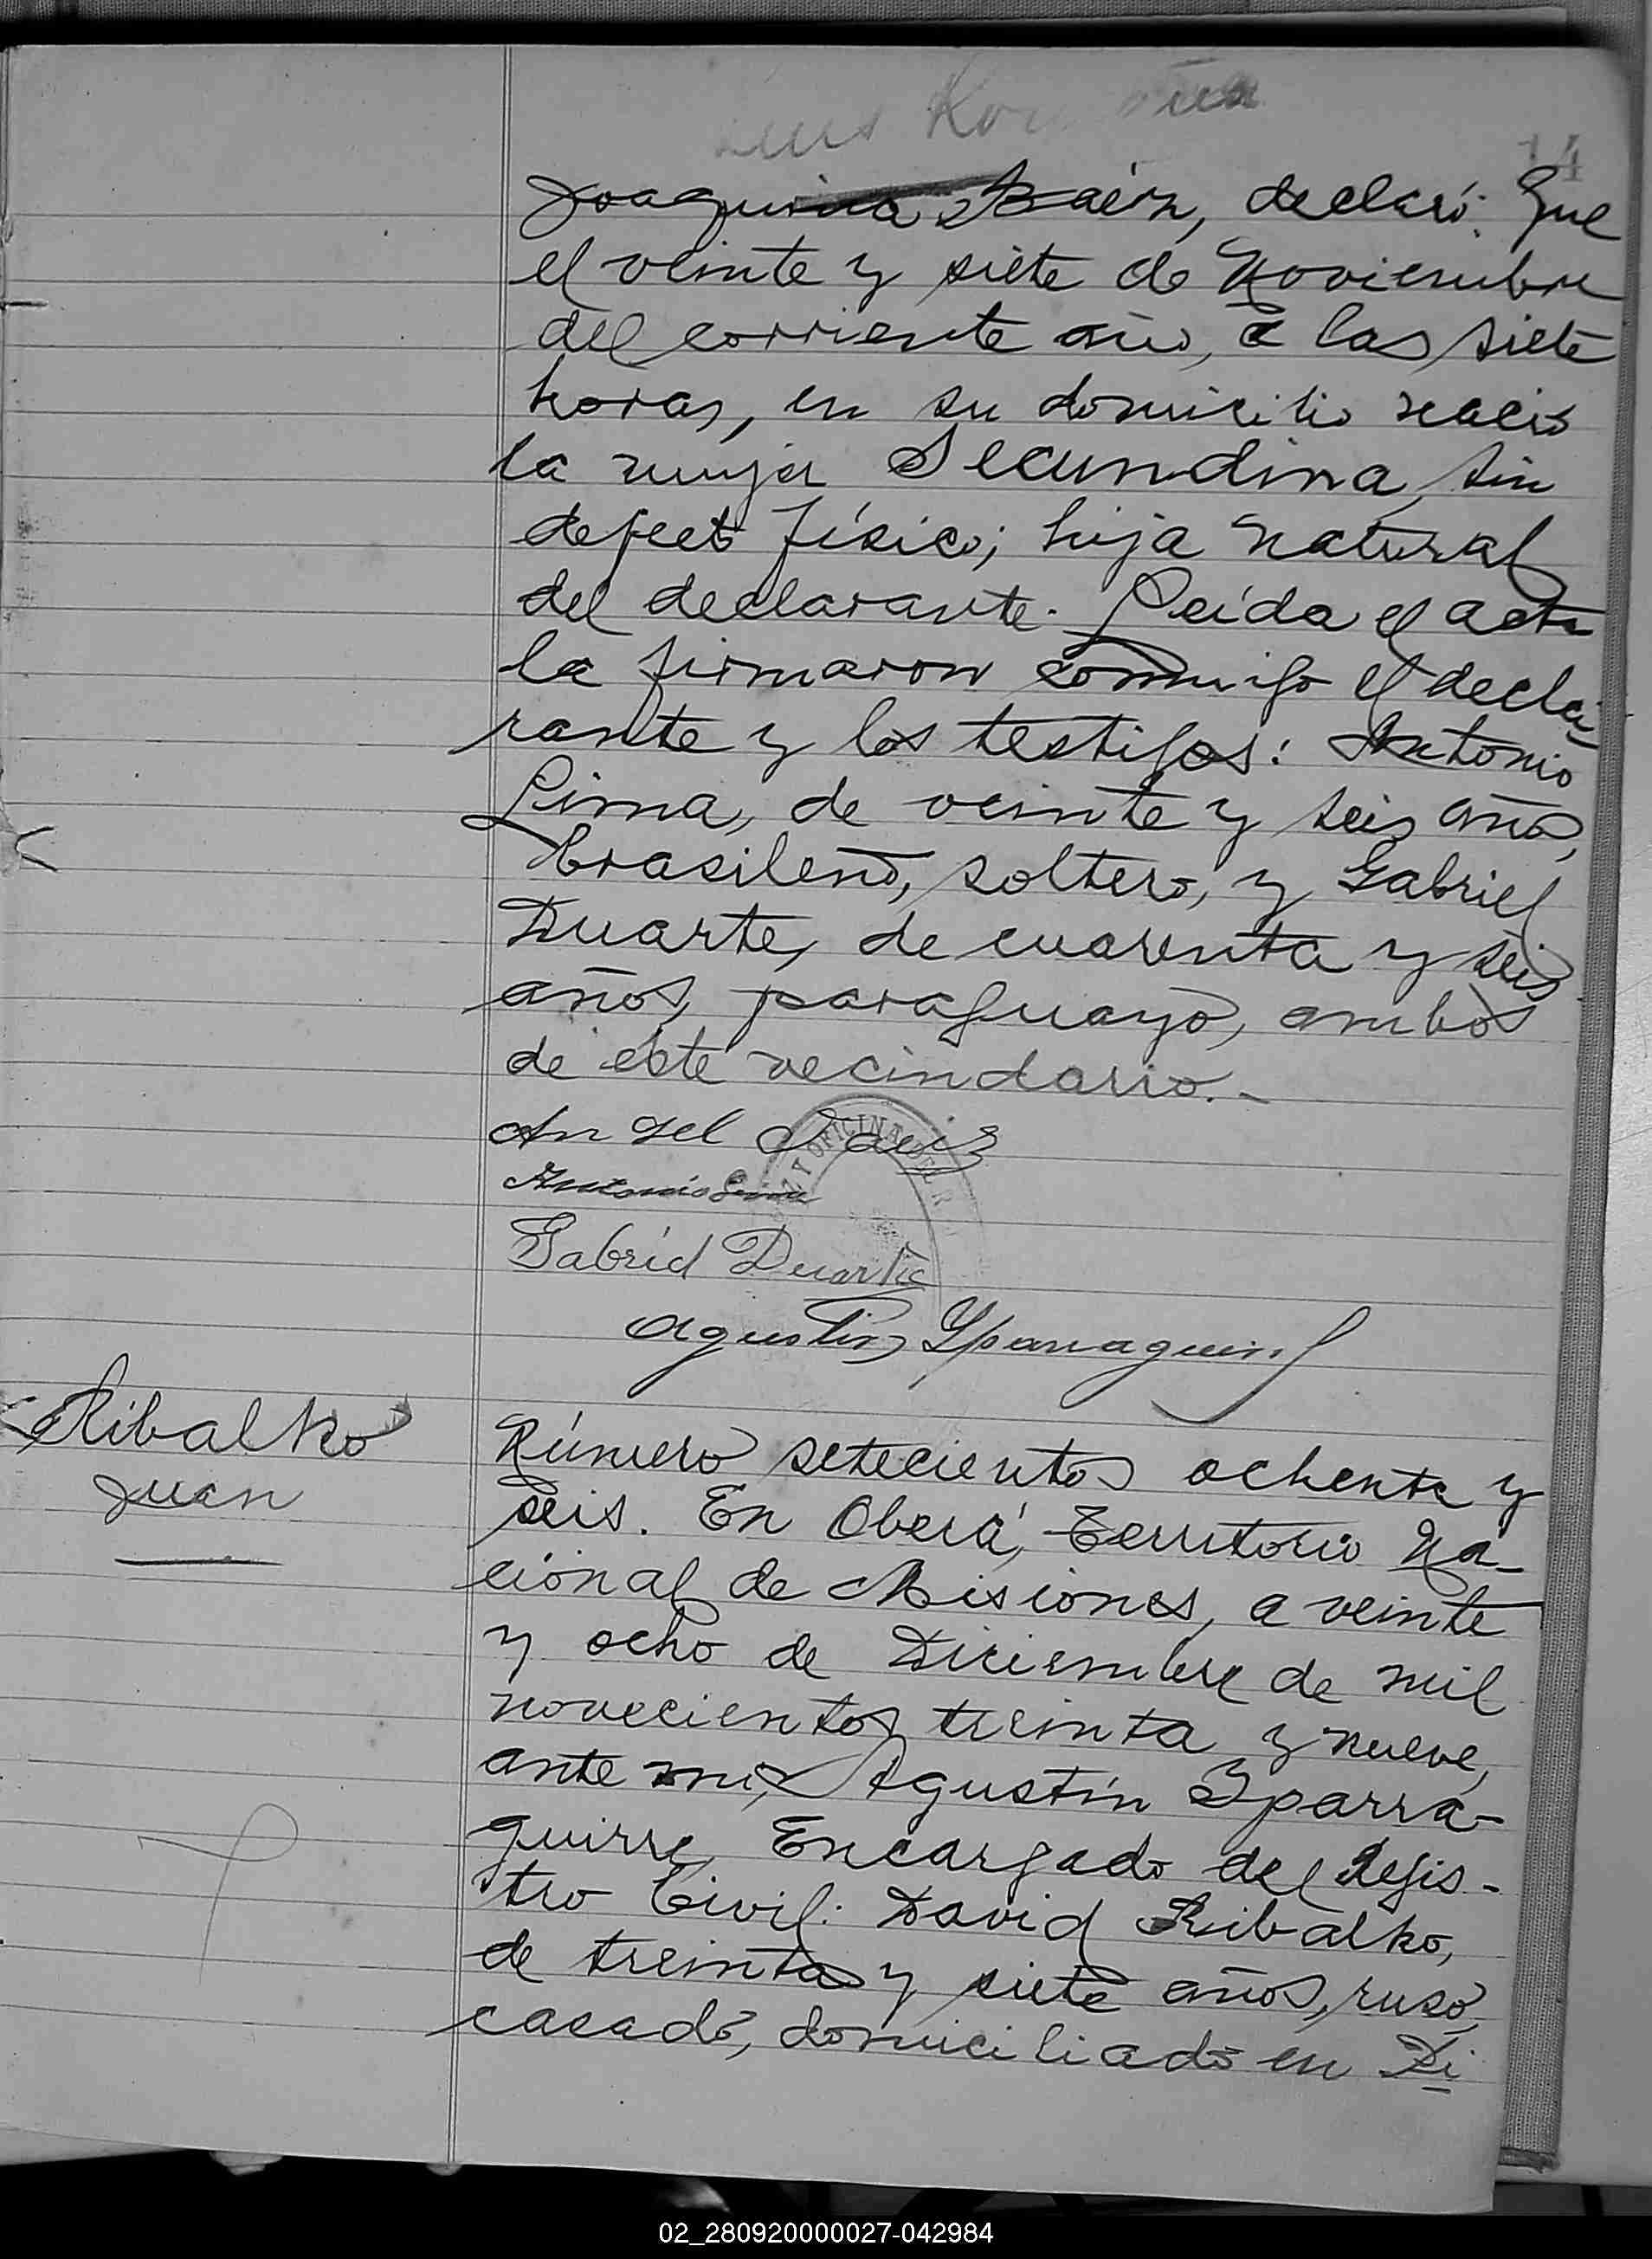 Joaquina Báez, declaró: Que
el veinte y siete de Noviembre
del corriente año, a las siete
horas, en su domicilio nació
la mujer Secundina, sin
defecto físico; hija natural
del declarante. Leída el acta
la firmaron conmigo el decla-
rante y los testigos: Antonio
Lima, de veinte y seis años,
brasileño, soltero, y Gabriel
Duarte, de cuarenta y seis
años, paraguayo, ambos
de este vecindario.-
Angel
Antonio Lima
Gabriel Duarte
OFICINA DEL R
Agustin Yparraguirre
Ribalko
Juan
Número setecientos ochenta y
seis. En Oberá, Territorio Na-
cional de Misiones, a veinte
y ocho de Diciembre de mil
novecientos treinta y nueve,
ante mi, Agustín Yparra-
guirre, Encargado del Regis-
tro Civil: David Ribalko,
de treinta y siete años, ruso,
casado, domiciliado en Pi
02_280920000027-042984